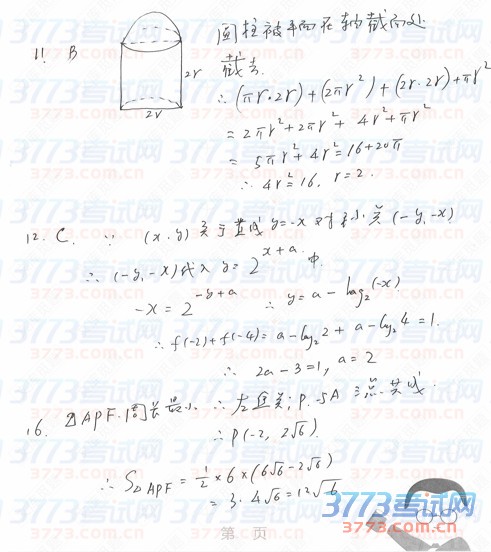 11. B
圆柱被平面在轴截面处
截去.
2r
2r
∴ (πr·2r)+(2πr²)+(2r·2r)+πr²
= 2πr²+2πr²+4r²+πr²
= 5πr²+4r²=16+20π
∴ 4r²=16, r=2.
12. C. ∵ (x.y)关于直线y=-x对称 (-y,-x)
∴ (-y,-x)代入 y=2^(x+a) 中.
-x=2^(-y+a) ∴ y=a-log₂(-x)
∴ f(-2)+f(-4)=a-log₂2+a-log₂4=1.
∴ 2a-3=1, a=2
16. △APF.周长最小 ∴ 左焦点; P.与A三点共线.
∴ P(-2, 2√6)
∴ S△APF = 1/2×6×(6√6-2√6)
= 3·4√6=12√6
第 页
3773考试网
www.3773.com.cn